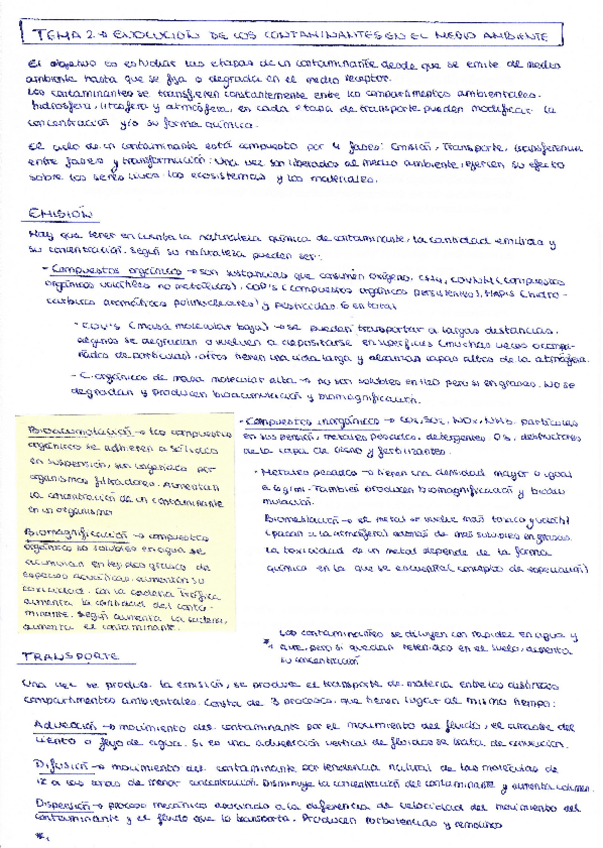 TEMA 2 → EVOLUCIÓN DE LOS CONTAMINANTES EN EL MEDIO AMBIENTE
El objetivo es estudiar las etapas de un contaminante desde que se emite del medio
ambiente hasta que se fija o degrada en el medio receptor.
Los contaminantes se transfieren constantemente entre los compartimentos ambientales.
hidrosfera, litosfera y atmósfera, en cada etapa de transporte pueden modificar la
concentración y/o su forma química.
El ciclo de un contaminante está compuesto por 4 fases: Emisión, Transporte, transferencia
entre fases y transformación. Una vez son liberados al medio ambiente, ejercen su efecto
sobre los seres vivos. los ecosistemas y los materiales.
EMISIÓN
Hay que tener en cuenta la naturaleza química de contaminante, la cantidad emitida y
su concentración. Según su naturaleza pueden ser:
- Compuestos orgánicos → son sustancias que consumen oxígeno, CH4, (compuestos
orgánicos volátiles no metánicos), COP's (compuestos orgánicos persistentes), HAPs (hidro-
carburos aromáticos polinucleares) y pesticidas.
- COV's (masa molecular baja) → se pueden transportar a largas distancias.
algunos se degradan o vuelven a depositarse en superficies (muchas veces acompa-
ñados de partículas), otros tienen una vida larga y alcanzan capas altas de la atmósfera.
- C. orgánicos de masa molecular alta → no son solubles en H2O pero si en grasas. No se
degradan y producen bioacumulación y biomagnificación.
Bioacumulación → los compuestos
orgánicos se adhieren a sólidos
en suspensión, son ingeridos por
organismos filtradores. Aumentan
la concentración de un contaminante
en un organismo
Biomagnificación → compuestos
orgánicos no solubles en agua se
acumulan en tejidos grasos de
especies acuáticas. aumentan su
toxicidad. Con la cadena trófica
aumenta la cantidad del conta-
minante. Según aumenta la cadena,
aumenta el contaminante.
- Compuestos inorgánicos → COx, SO2, NOx, NH3. partículas
en suspensión, metales pesados, detergentes O3, destructores
de la capa de ozono y fertilizantes.
- Metales pesados → tienen una densidad mayor o igual
a También producen biomagnificación y bioacu-
mulación.
Biometilación → el metal se vuelve más tóxico y volátil
(pasan a la atmósfera) además de más solubles en grasas.
La toxicidad de un metal depende de la forma
química en la que se encuentre (concepto de especiación)
* Los contaminantes se diluyen con rapidez en agua y
aire, pero si quedan retenidos en el suelo, aumenta
su concentración
TRANSPORTE
Una vez se produce la emisión, se produce el transporte de materia entre los distintos
compartimentos ambientales. Consta de 3 procesos que tienen lugar al mismo tiempo:
Advección → movimiento del contaminante por el movimiento del fluido, el arrastre del
viento o flujo de agua. Si es una advección vertical de fluidos se trata de convección.
Difusión → movimiento del contaminante por tendencia natural de las moléculas de
ir a las zonas de menor concentración. Disminuye la concentración del contaminante y aumenta volumen.
Dispersión → proceso mecánico asociado a la diferencia de velocidad del movimiento del
contaminante y el fluido que lo transporta. Producen turbulencias y remolinos
*1